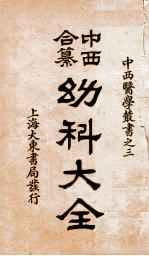 中西醫學叢書之三
中西合纂
幼科大全
上海大東書局發行